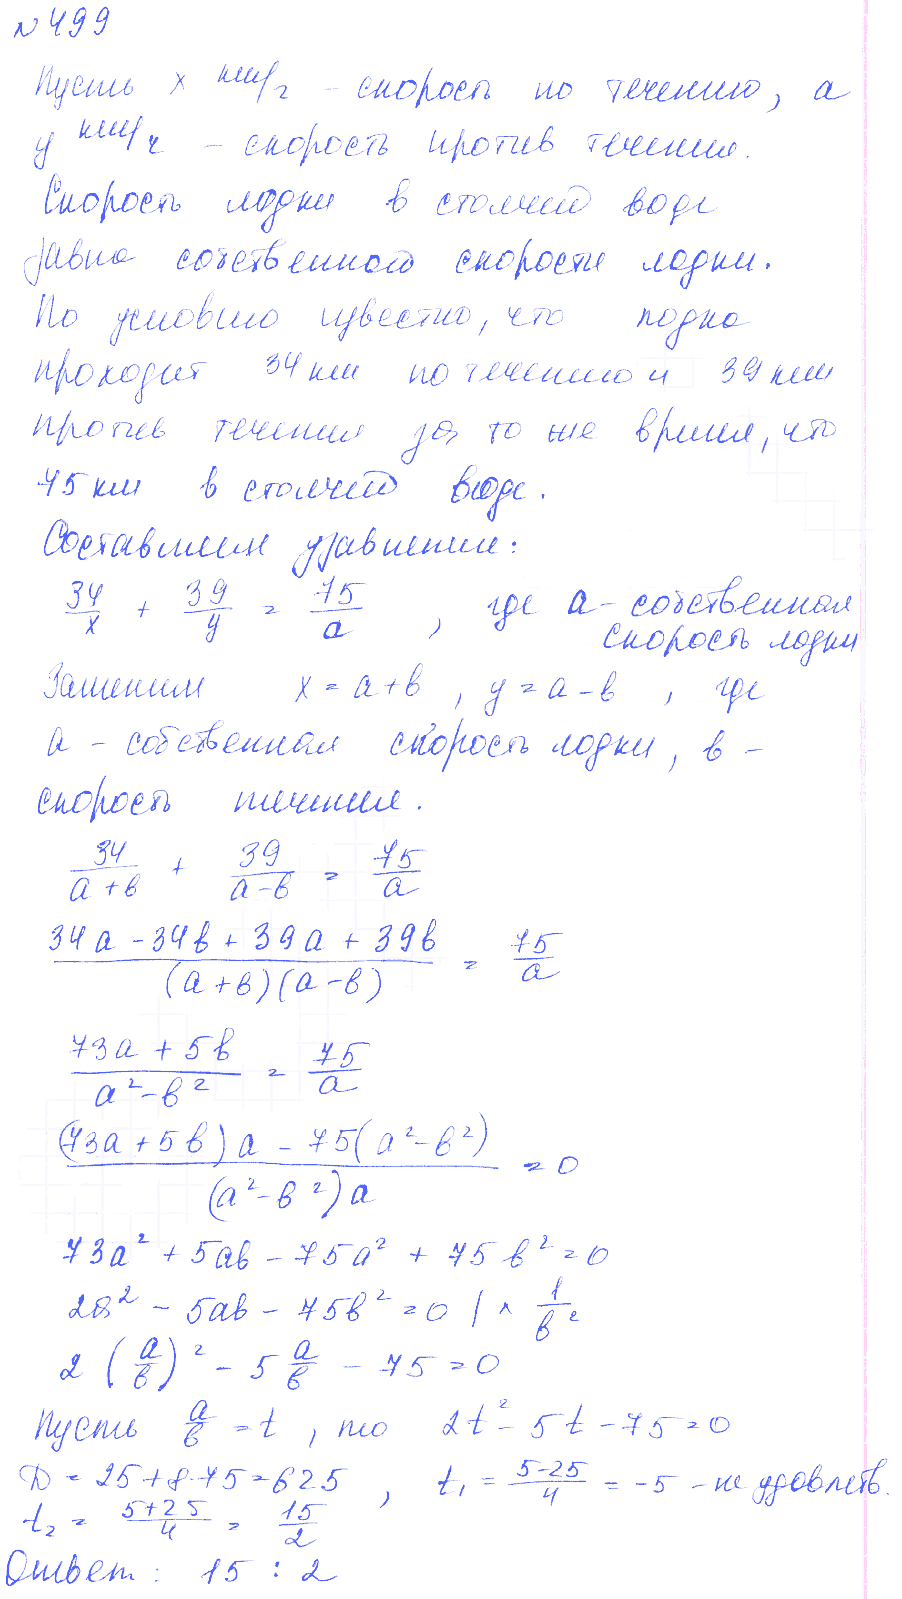 №499
Пусть x км/ч – скорость по течению, а
y км/ч – скорость против течения.
Скорость лодки в стоячей воде
равна собственной скорости лодки.
По условию известно, что лодка
проходит 34 км по течению и 39 км
против течения за то же время, что
75 км в стоячей воде.
Составим уравнение:
34/x + 39/y = 75/a, где a – собственная
скорость лодки
Заменим x = a+в, y = a–в, где
a – собственная скорость лодки, в –
скорость течения.
34/(a+в) + 39/(a–в) = 75/a
(34a – 34в + 39a + 39в)/((a+в)(a–в)) = 75/a
(73a + 5в)/(a²–в²) = 75/a
((73a+5в)a – 75(a²–в²))/((a²–в²)a) = 0
73a² + 5aв – 75a² + 75в² = 0
2a² – 5aв – 75в² = 0 | · 1/в²
2(a/в)² – 5 a/в – 75 = 0
Пусть a/в = t, то 2t² – 5t – 75 = 0
D = 25+8·75=625, t₁ = (5–25)/4 = –5 – не удовлетв.
t₂ = (5+25)/4 = 15/2
Ответ: 15 : 2